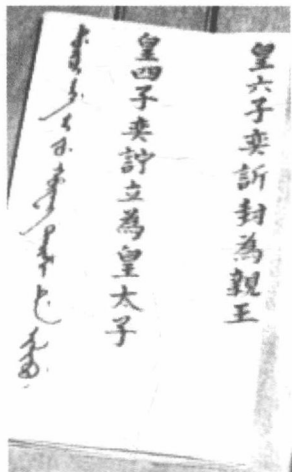 皇六子奕訢封為親王
皇四子奕詝立為皇太子